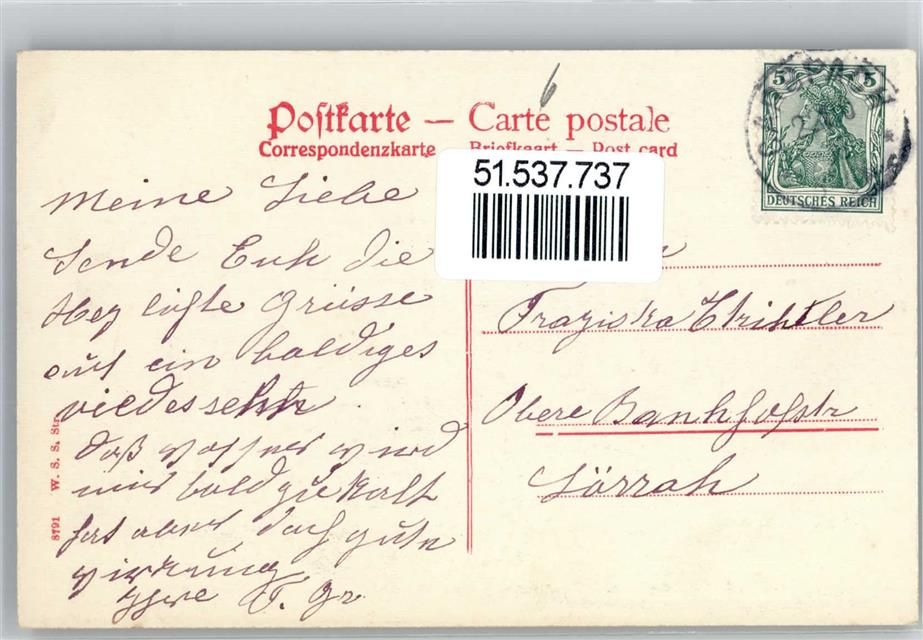 Postkarte — Carte postale
Correspondenzkarte Briefkaart — Post card
51.537.737
5 5
DEUTSCHES REICH
Meine Liebe
Sende Euh die
Herzligste Grüsse
auf ein baldiges
viedessehn
daß wasser wird
mir bald zu kalt
hat aber doch gute
wirkung
Ihre F. Gr.
Obere Banhhofstr
Lörrah
8791 W. S. S. Str.